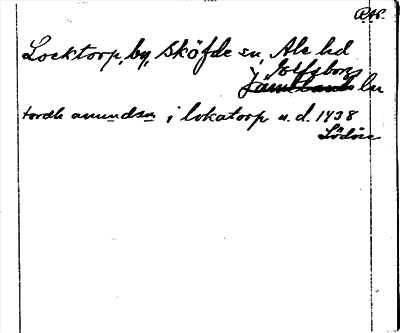 RAP.
Locktorp, by, Sköfde sn, Ale hd
Elfsborgs
Jämtlands län
tordh amundsn i lokatorp u. d. 1438
Lödöse